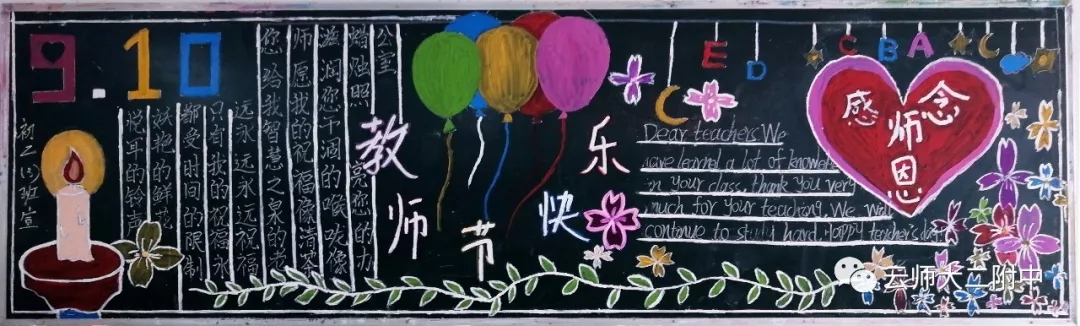 9.10
悦耳的铃声
妖艳的鲜花
都受时间的限制
只有我的祝福永
远永远永远祝福
您 给我智慧之泉的老
师 愿我的祝福像清泉
滋润您干涸的喉咙像
蜡烛照亮您的办
公室
教师节快乐
E D C B A
Dear teachers, We
have learned a lot of knowle
in your class, thank you very
much for your teaching. We will
continue to study hard. Happy teacher's day
感念师恩
云师大二附中